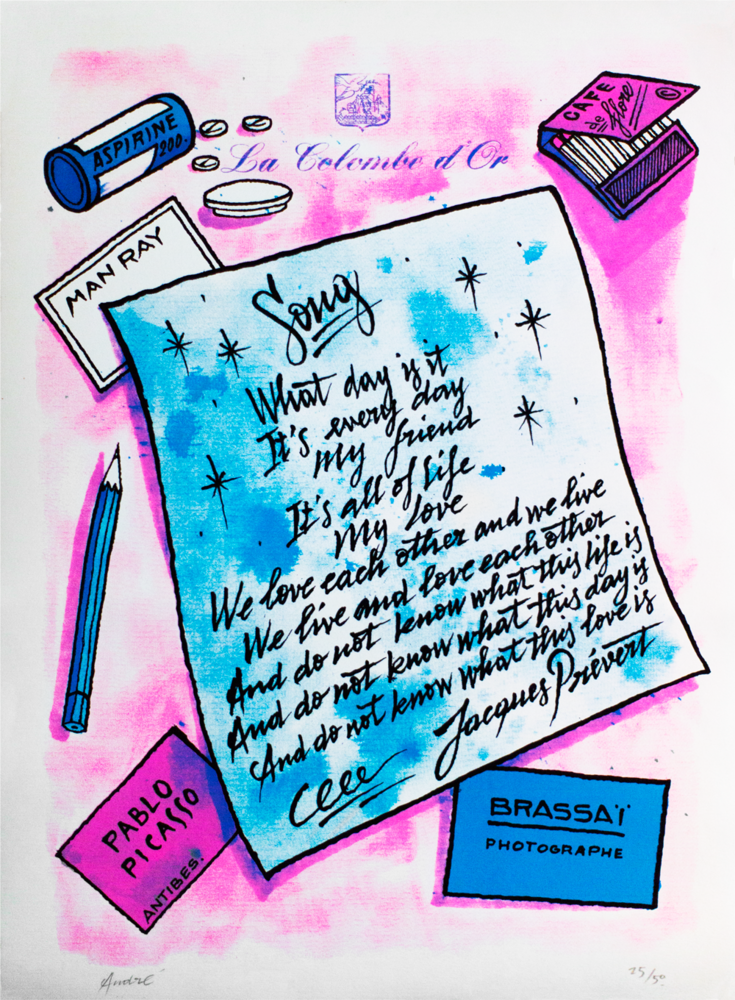 ASPIRINE
200.
La Colombe d'Or
CAFE
de
flore
©
MAN RAY
Song
What day is it
It's every day
My friend
It's all of life
My love
We love each other and we live
We live and love each other
And do not know what this life is
And do not know what this day is
And do not know what this love is
Jacques Prévert
PABLO
PICASSO
ANTIBES.
BRASSAÏ
PHOTOGRAPHE
André
25/50